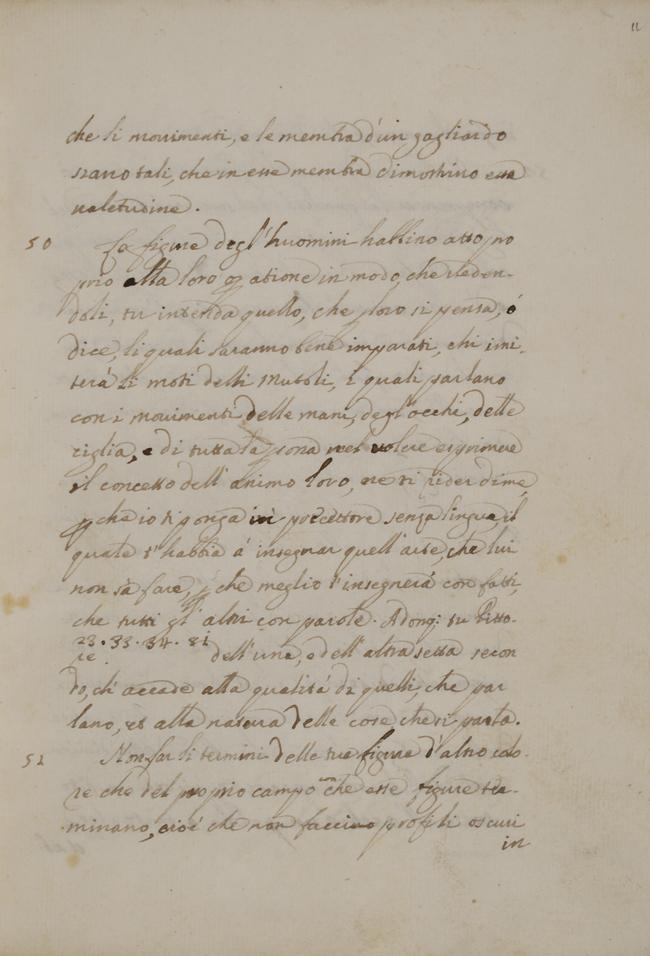 11
che li mouimenti, e le membra d'un gagliardo
siano tali, che in esse membra dimostrino essa
ualetudine.
50 Le figure degl'huomini habbino atto pro
prio alla loro operatione in modo, che ueden-
doli, tu intenda quello, che loro si pensa, ó
dice, li quali saranno bene imparati, chi imi-
terá li moti delli Mutoli, i quali parlano
con i mouimenti delle mani, degl'occhi, delle
ciglia, e di tutta la persona nel uolere esprimere
il concetto dell'animo loro, ne ti rider di me,
perche io ti ponga in precettore senza lingua, il
quale t'habbia á insegnar quell'arte, che lui
non sà fare, perche meglio t'insegnerá con fatti,
che tutti gl'altri con parole. Adonq; tu Pitto-
23.33.34.81
re dell'una, e dell'altra setta secon
do, ch'accade alla qualitá di quelli, che par
lano, et alla natura delle cose che si parla.
52 Non far li termini delle tue figure d'altro colo-
re che del proprio campo con che esse figure ter-
minano, cioé che non faccino profili oscuri
in